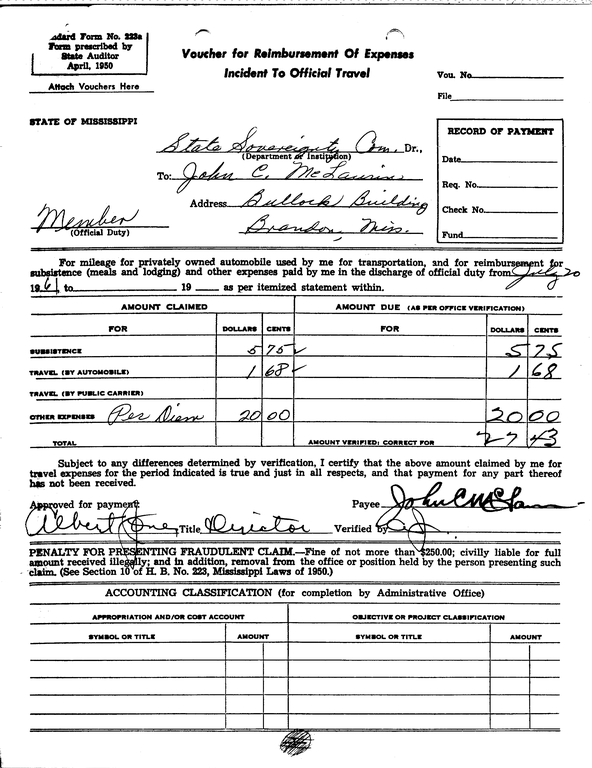 Standard Form No. 223a
Form prescribed by
State Auditor
April, 1950
Attach Vouchers Here
Voucher for Reimbursement Of Expenses
Incident To Official Travel
Vou. No.
File
STATE OF MISSISSIPPI
State Sovereignty Com. Dr.,
(Department or Institution)
To: John C. McLaurin
Address Bullock Building
Brandon, Miss.
Member
(Official Duty)
RECORD OF PAYMENT
Date
Req. No.
Check No.
Fund
For mileage for privately owned automobile used by me for transportation, and for reimbursement for
subsistence (meals and lodging) and other expenses paid by me in the discharge of official duty from July 20
1961 to 19 as per itemized statement within.
AMOUNT CLAIMED AMOUNT DUE (AS PER OFFICE VERIFICATION)
FOR DOLLARS CENTS FOR DOLLARS CENTS
SUBSISTENCE 5 75 ✓ 5 75
TRAVEL (BY AUTOMOBILE) 1 68 ✓ 1 68
TRAVEL (BY PUBLIC CARRIER)
OTHER EXPENSES Per Diem 20 00 20 00
TOTAL AMOUNT VERIFIED; CORRECT FOR 27 43
Subject to any differences determined by verification, I certify that the above amount claimed by me for
travel expenses for the period indicated is true and just in all respects, and that payment for any part thereof
has not been received.
Approved for payment Payee John C McLaurin
Albert Jones Title Director Verified by
PENALTY FOR PRESENTING FRAUDULENT CLAIM.—Fine of not more than $250.00; civilly liable for full
amount received illegally; and in addition, removal from the office or position held by the person presenting such
claim. (See Section 10 of H. B. No. 223, Mississippi Laws of 1950.)
ACCOUNTING CLASSIFICATION (for completion by Administrative Office)
APPROPRIATION AND/OR COST ACCOUNT OBJECTIVE OR PROJECT CLASSIFICATION
SYMBOL OR TITLE AMOUNT SYMBOL OR TITLE AMOUNT